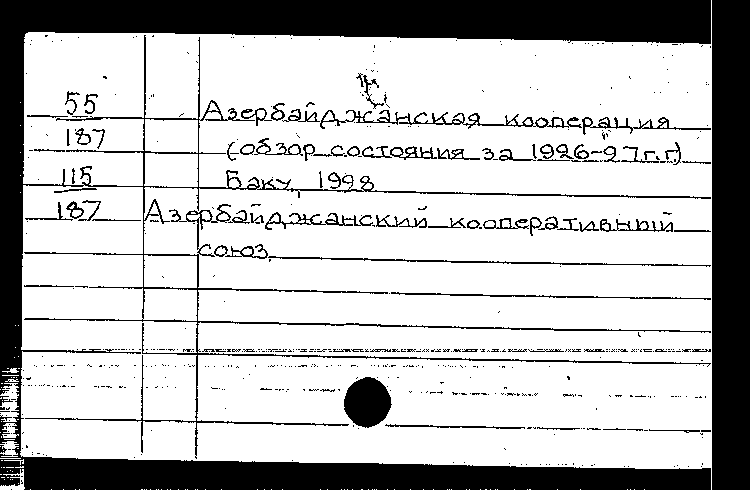 55 Азербайджанская кооперация
187 (обзор состояния за 1926-27г.г.)
115 Баку, 1928
187 Азербайджанский кооперативный
союз.